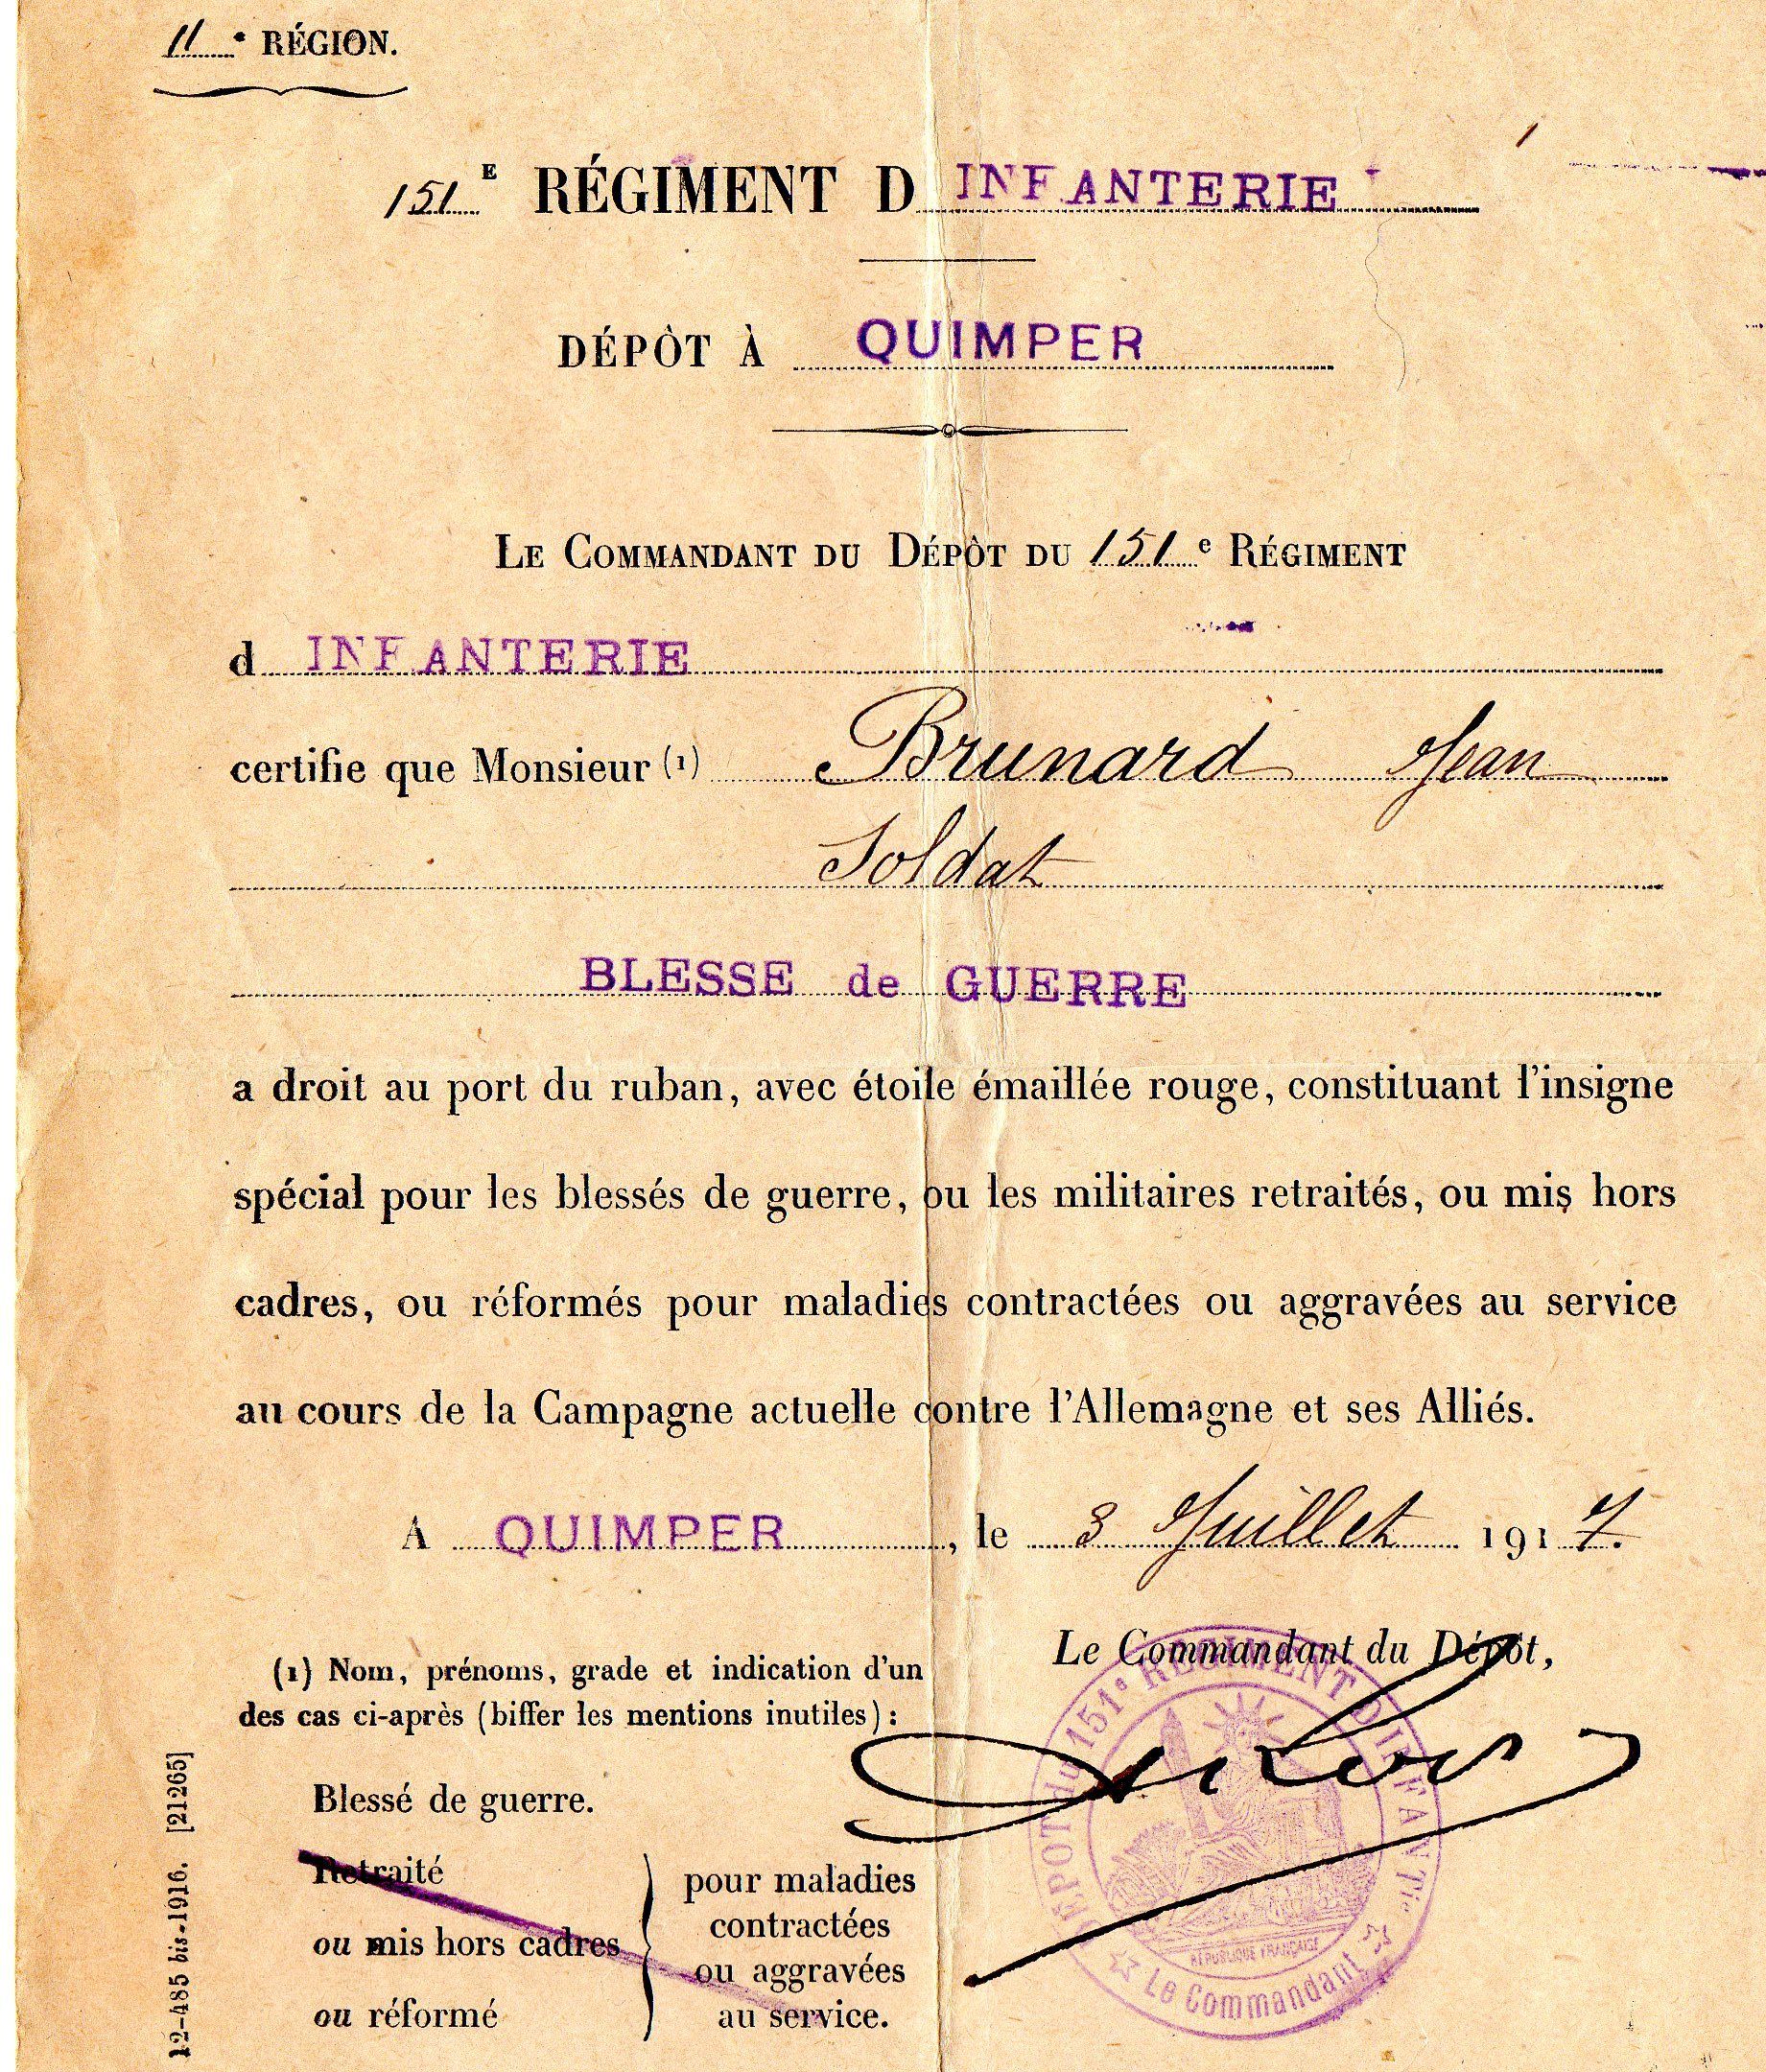 11e RÉGION.
151E RÉGIMENT D INFANTERIE
DÉPÔT À QUIMPER
LE COMMANDANT DU DÉPÔT DU 151e RÉGIMENT
d INFANTERIE
certifie que Monsieur (1) Brunard Jean
Soldat
BLESSE de GUERRE
a droit au port du ruban, avec étoile émaillée rouge, constituant l'insigne
spécial pour les blessés de guerre, ou les militaires retraités, ou mis hors
cadres, ou réformés pour maladies contractées ou aggravées au service
au cours de la Campagne actuelle contre l'Allemagne et ses Alliés.
A QUIMPER, le 3 Juillet 1917.
Le Commandant du Dépôt,
DEPOT du 151e REGIMENT D'INFANTie
RÉPUBLIQUE FRANÇAISE
Le Commandant
(1) Nom, prénoms, grade et indication d'un
des cas ci-après (biffer les mentions inutiles) :
Blessé de guerre.
Retraité
ou mis hors cadres
ou réformé
pour maladies
contractées
ou aggravées
au service.
12-485 bis-1916. [21265]